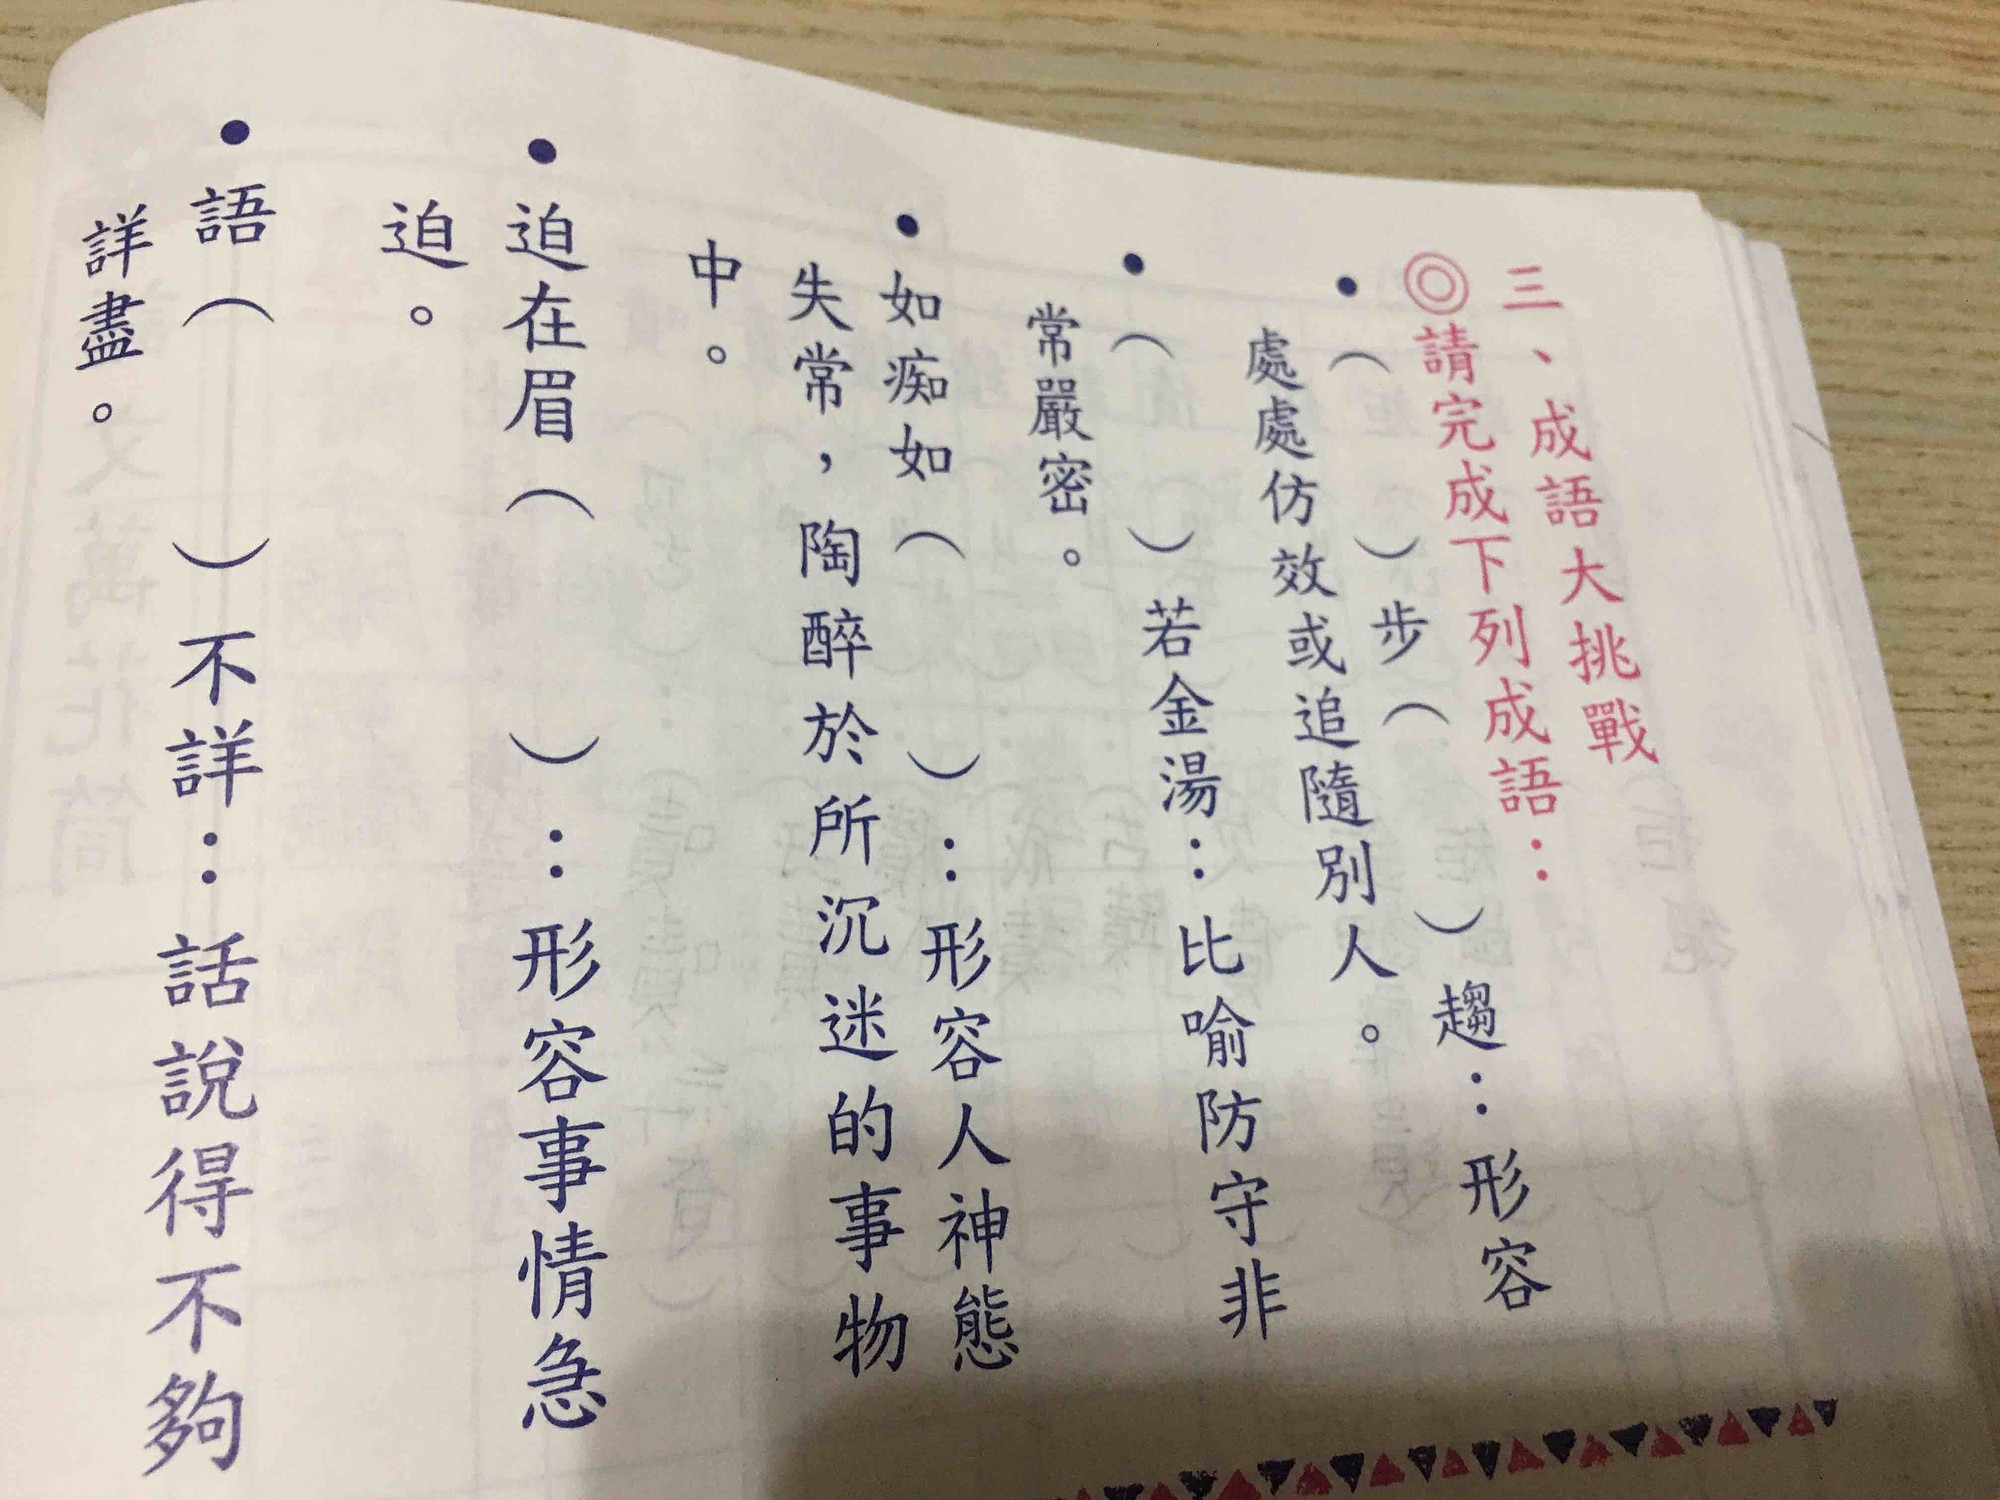 三、成語大挑戰
◎請完成下列成語:
•( )步( )趨:形容
處處仿效或追隨別人。
•( )若金湯:比喻防守非
常嚴密。
•如痴如( ):形容人神態
失常,陶醉於所沉迷的事物
中。
•迫在眉( ):形容事情急
迫。
•語( )不詳:話說得不夠
詳盡。